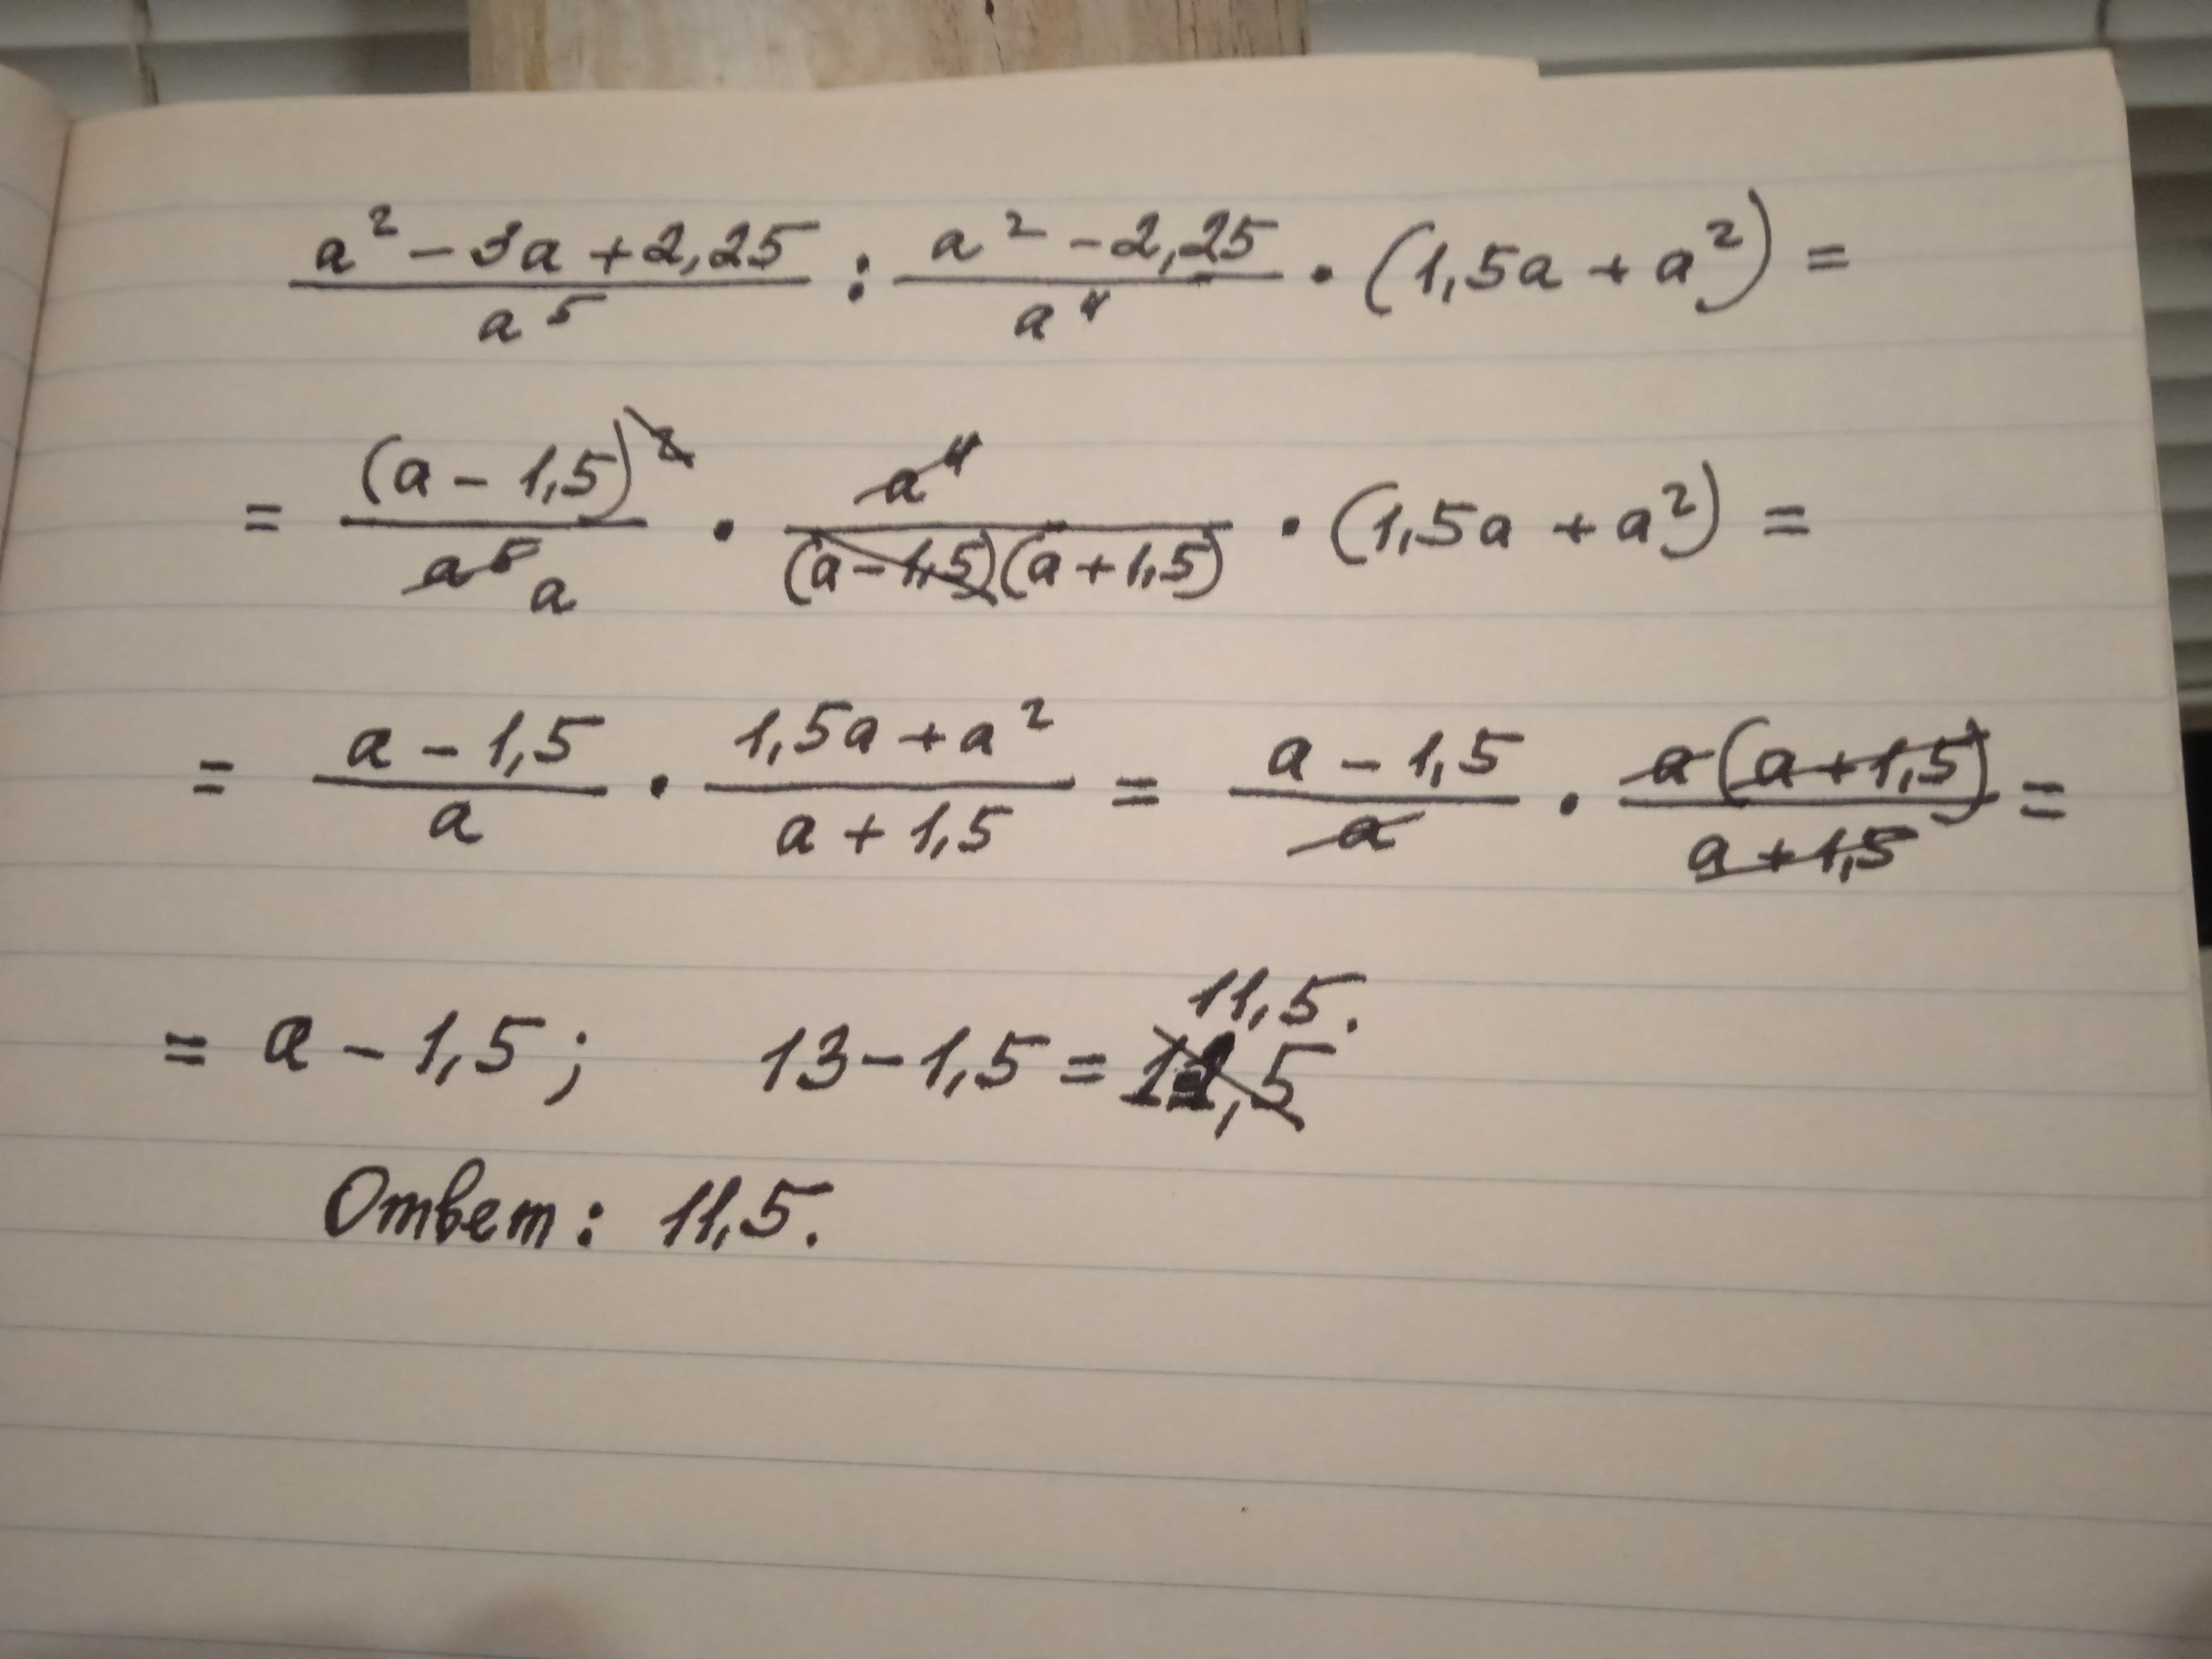 (a² - 3a + 2,25)/a⁵ : (a² - 2,25)/a⁴ · (1,5a + a²) =
= (a - 1,5)²/a⁵ a · a⁴/(a - 1,5)(a + 1,5) · (1,5a + a²) =
= (a - 1,5)/a · (1,5a + a²)/(a + 1,5) = (a - 1,5)/a · a(a + 1,5)/(a + 1,5) =
= a - 1,5; 13 - 1,5 = 11,5.
Ответ: 11,5.